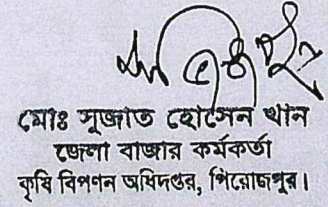 মোঃ সুজাত হোসেন খান
জেলা বাজার কর্মকর্তা
কৃষি বিপণন অধিদপ্তর, পিরোজপুর।